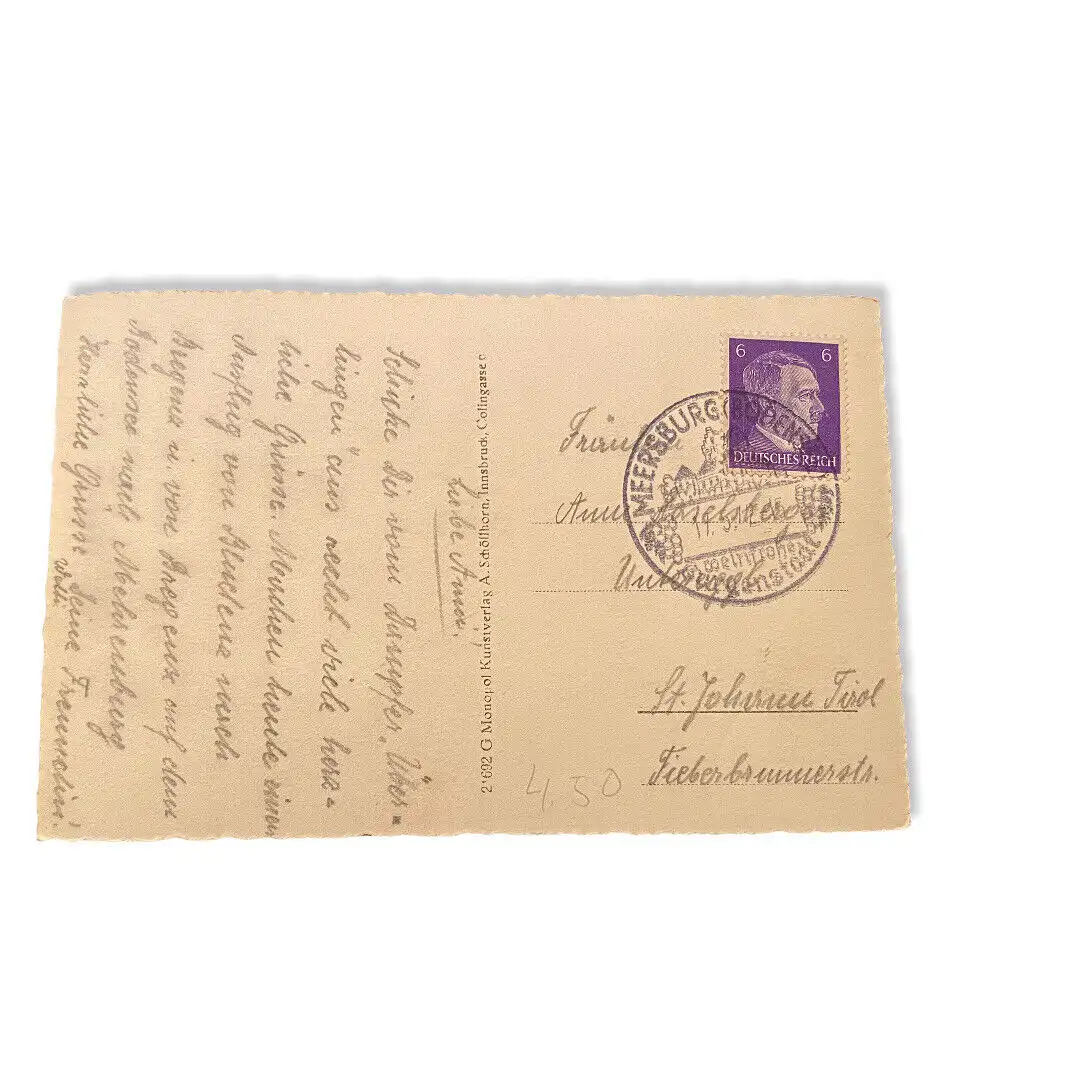 Liebe Anna!
Schicke dir vom Dampfer „Über=
lingen" aus recht viele herz=
liche Grüsse. Machen heute einen
Ausflug von Bludenz nach
Bregenz u. von Bregenz auf dem
Bodensee nach Mehrsburg
Herzliche Grüsse Deine Freundin!
2'692 G Monopol Kunstverlag A. Schöllhorn, Innsbruck, Colingasse
6 6
DEUTSCHES REICH
MEERSBURG (BODENSEE)
Fräulein
Anna
St. Johann Tirol
Fieberbrunnerstr.
4.50